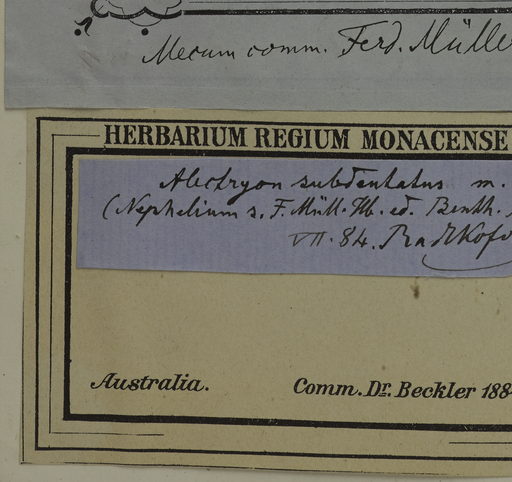 Mecum comm. Ferd. Mülle
HERBARIUM REGIUM MONACENSE
Alectryon subdentatus m.
(Nephelium s. F. Müll. Hb. ed. Benth.
VII. 84. Radlkofe
Australia.
Comm. Dr. Beckler 188